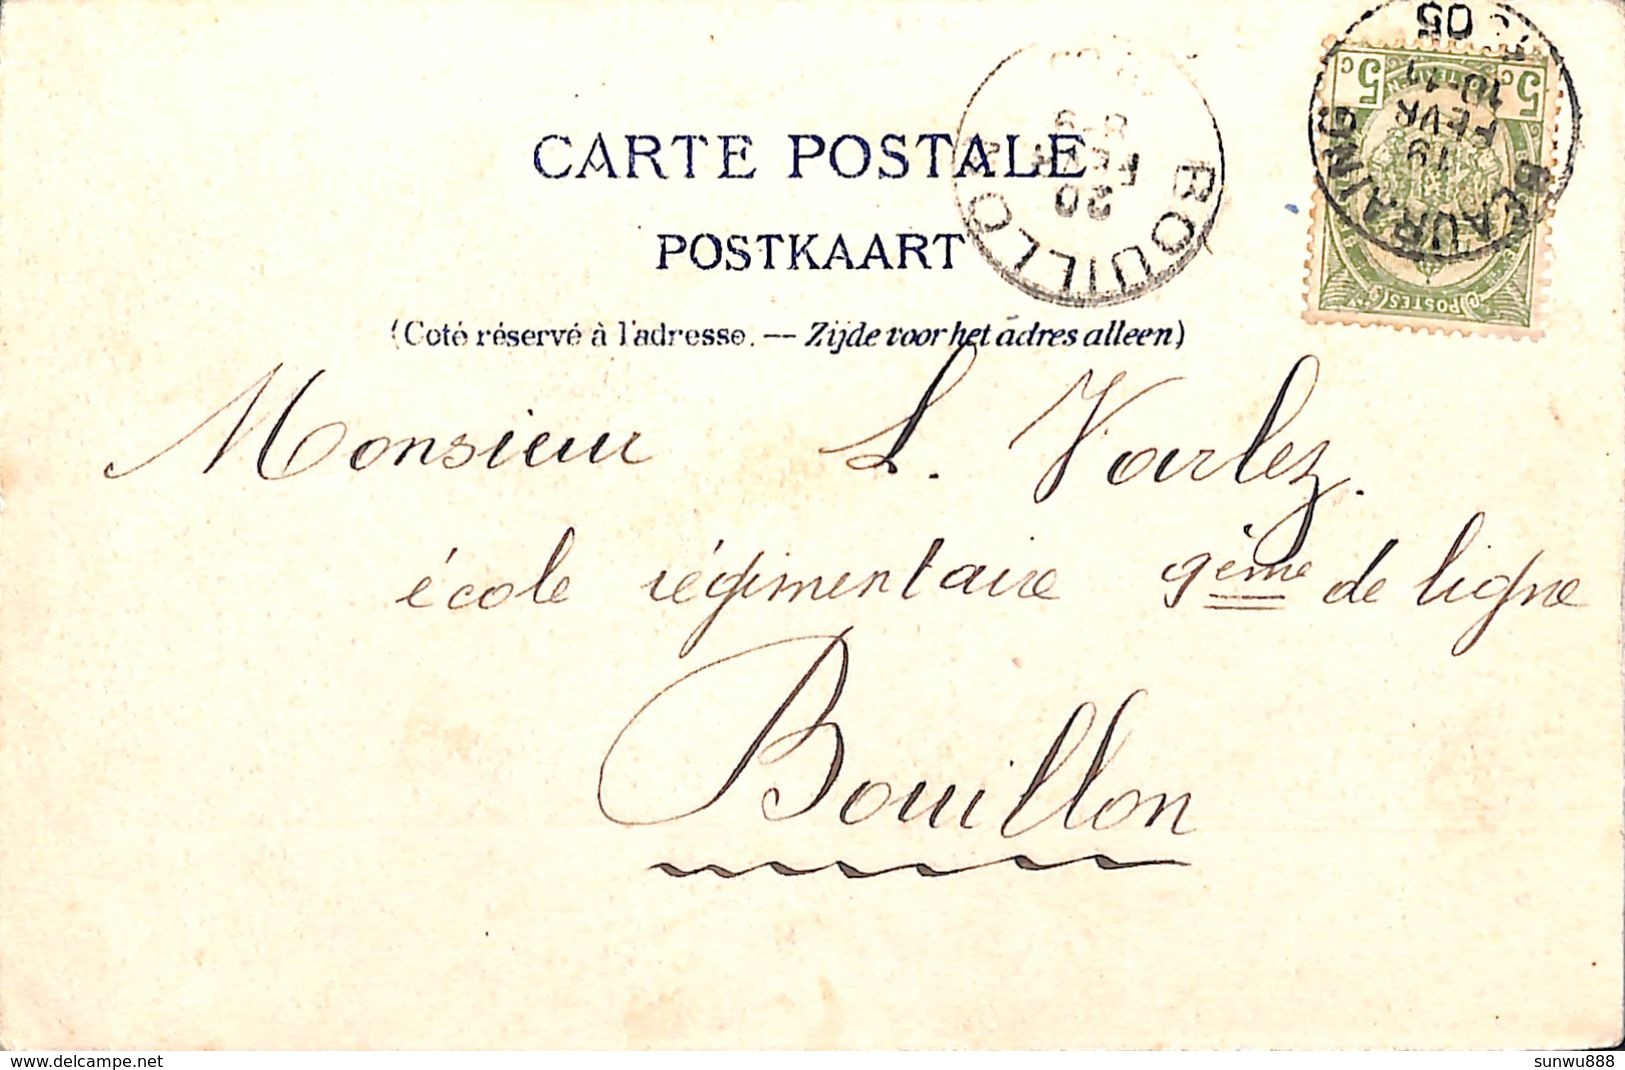 CARTE POSTALE
POSTKAART
(Coté réservé à l'adresse. — Zijde voor het adres alleen)
BOUILLON
20
FEVR
8-9
BEAURAING
19
FEVR
10-11
05
5 c
5 c
POSTES
Monsieur L. Varlez.
école régimentaire 9ème de ligne
Bouillon
www.delcampe.net
sunwu888